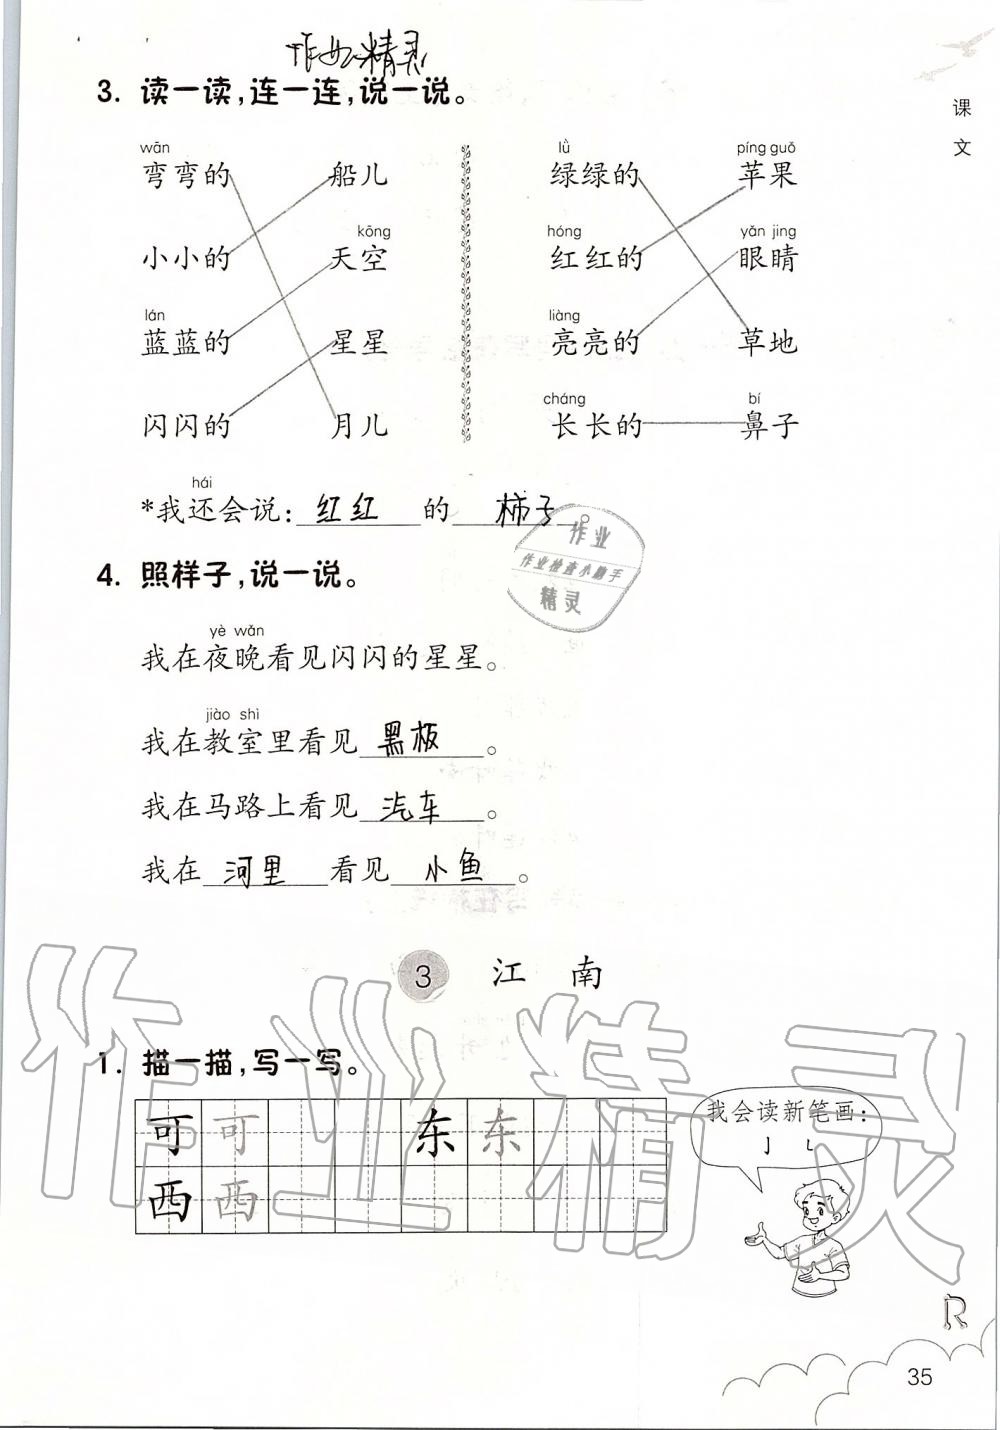 作业精灵
3. 读一读,连一连,说一说。
课文
wān
弯弯的 船儿
kōng
小小的 天空
lán
蓝蓝的 星星
闪闪的 月儿
lǜ píng guǒ
绿绿的 苹果
hóng yǎn jing
红红的 眼睛
liàng
亮亮的 草地
cháng bí
长长的 鼻子
hái
*我还会说:红红的柿子。
作业
作业检查小助手
精灵
4. 照样子,说一说。
yè wǎn
我在夜晚看见闪闪的星星。
jiào shì
我在教室里看见黑板。
我在马路上看见汽车。
我在河里看见小鱼。
3 江南
作业精灵
1. 描一描,写一写。
可 可 东 东
西 西
我会读新笔画:
亅 乚
R
35